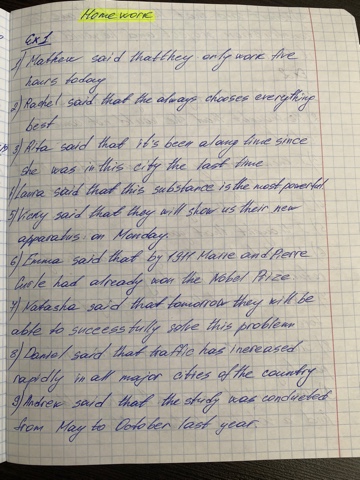 Homework
Ex 1
1) Mathew said that they only work five
hours today
2) Rachel said that the always chooses everything
best
3) Rita said that it's been a long time since
she was in this city the last time
4) Laura said that this substance is the most powerful.
5) Vicky said that they will show us their new
apparatus on Monday.
6) Emma said that by 1911 Marie and Pierre
Curie had already won the Nobel Prize
7) Natasha said that tomorrow they will be
able to successfully solve this problem
8) Daniel said that traffic has increased
rapidly in all major cities of the country
9) Andrew said that the study was conducted
from May to October last year.